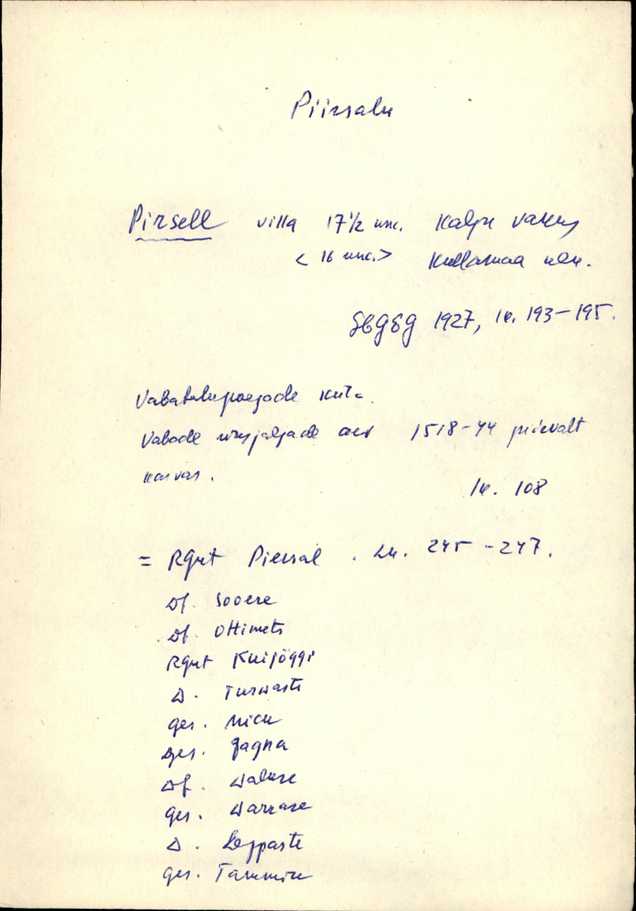 Piirsalu
Pirsell villa 17½ unc. Kalju vakus
< 16 unc. > Kullamaa
SbGEG 1927, lk. 193–195.
Vabatalupoegade küla
Vabade üksjalgade arv 1518–44 pidevalt
kasvas.
lk. 108
= Rgut Piersal . Lk. 245–247.
Df. Sooere
Df. Ottimets
Rgut Kuijöggi
D. Turwaste
ges. Nicu
ges. Jagna
Df. Waluse
ges. Warrase
D. Leppaste
ges. Tammiku